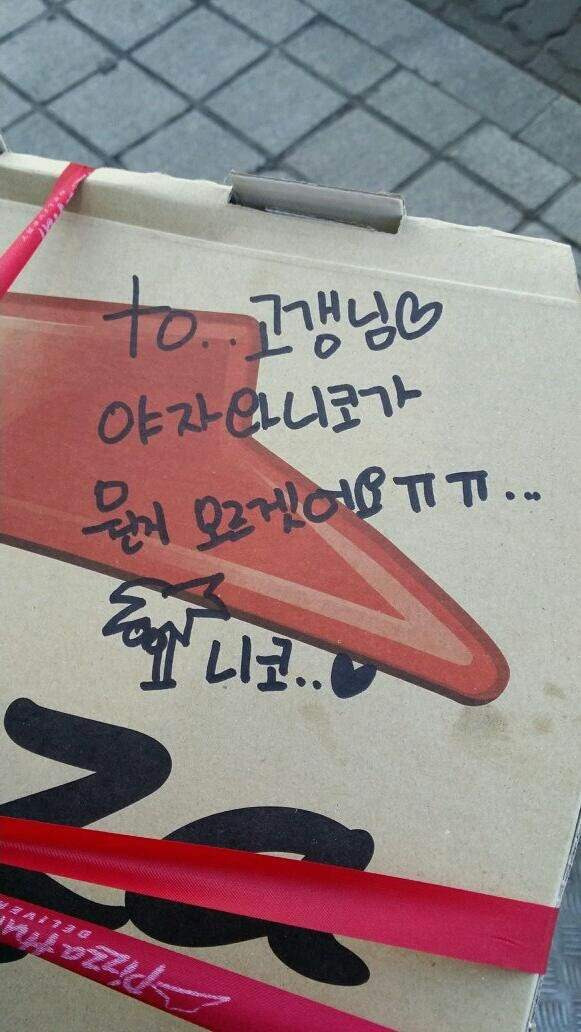 to..고갱님♡
야자와니코가
뭔지 모르겟어요ㅠㅠ...
니코..
Pizza Hut
DELIVER